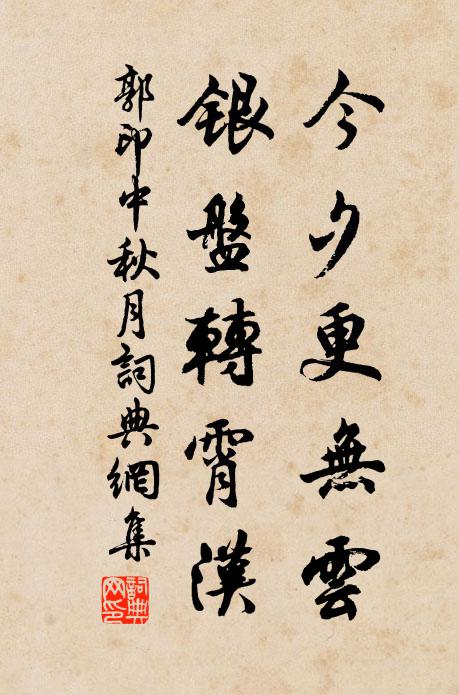 今夕更無雲
銀盤轉霄漢
郭印中秋月詞典網集
詞典網印